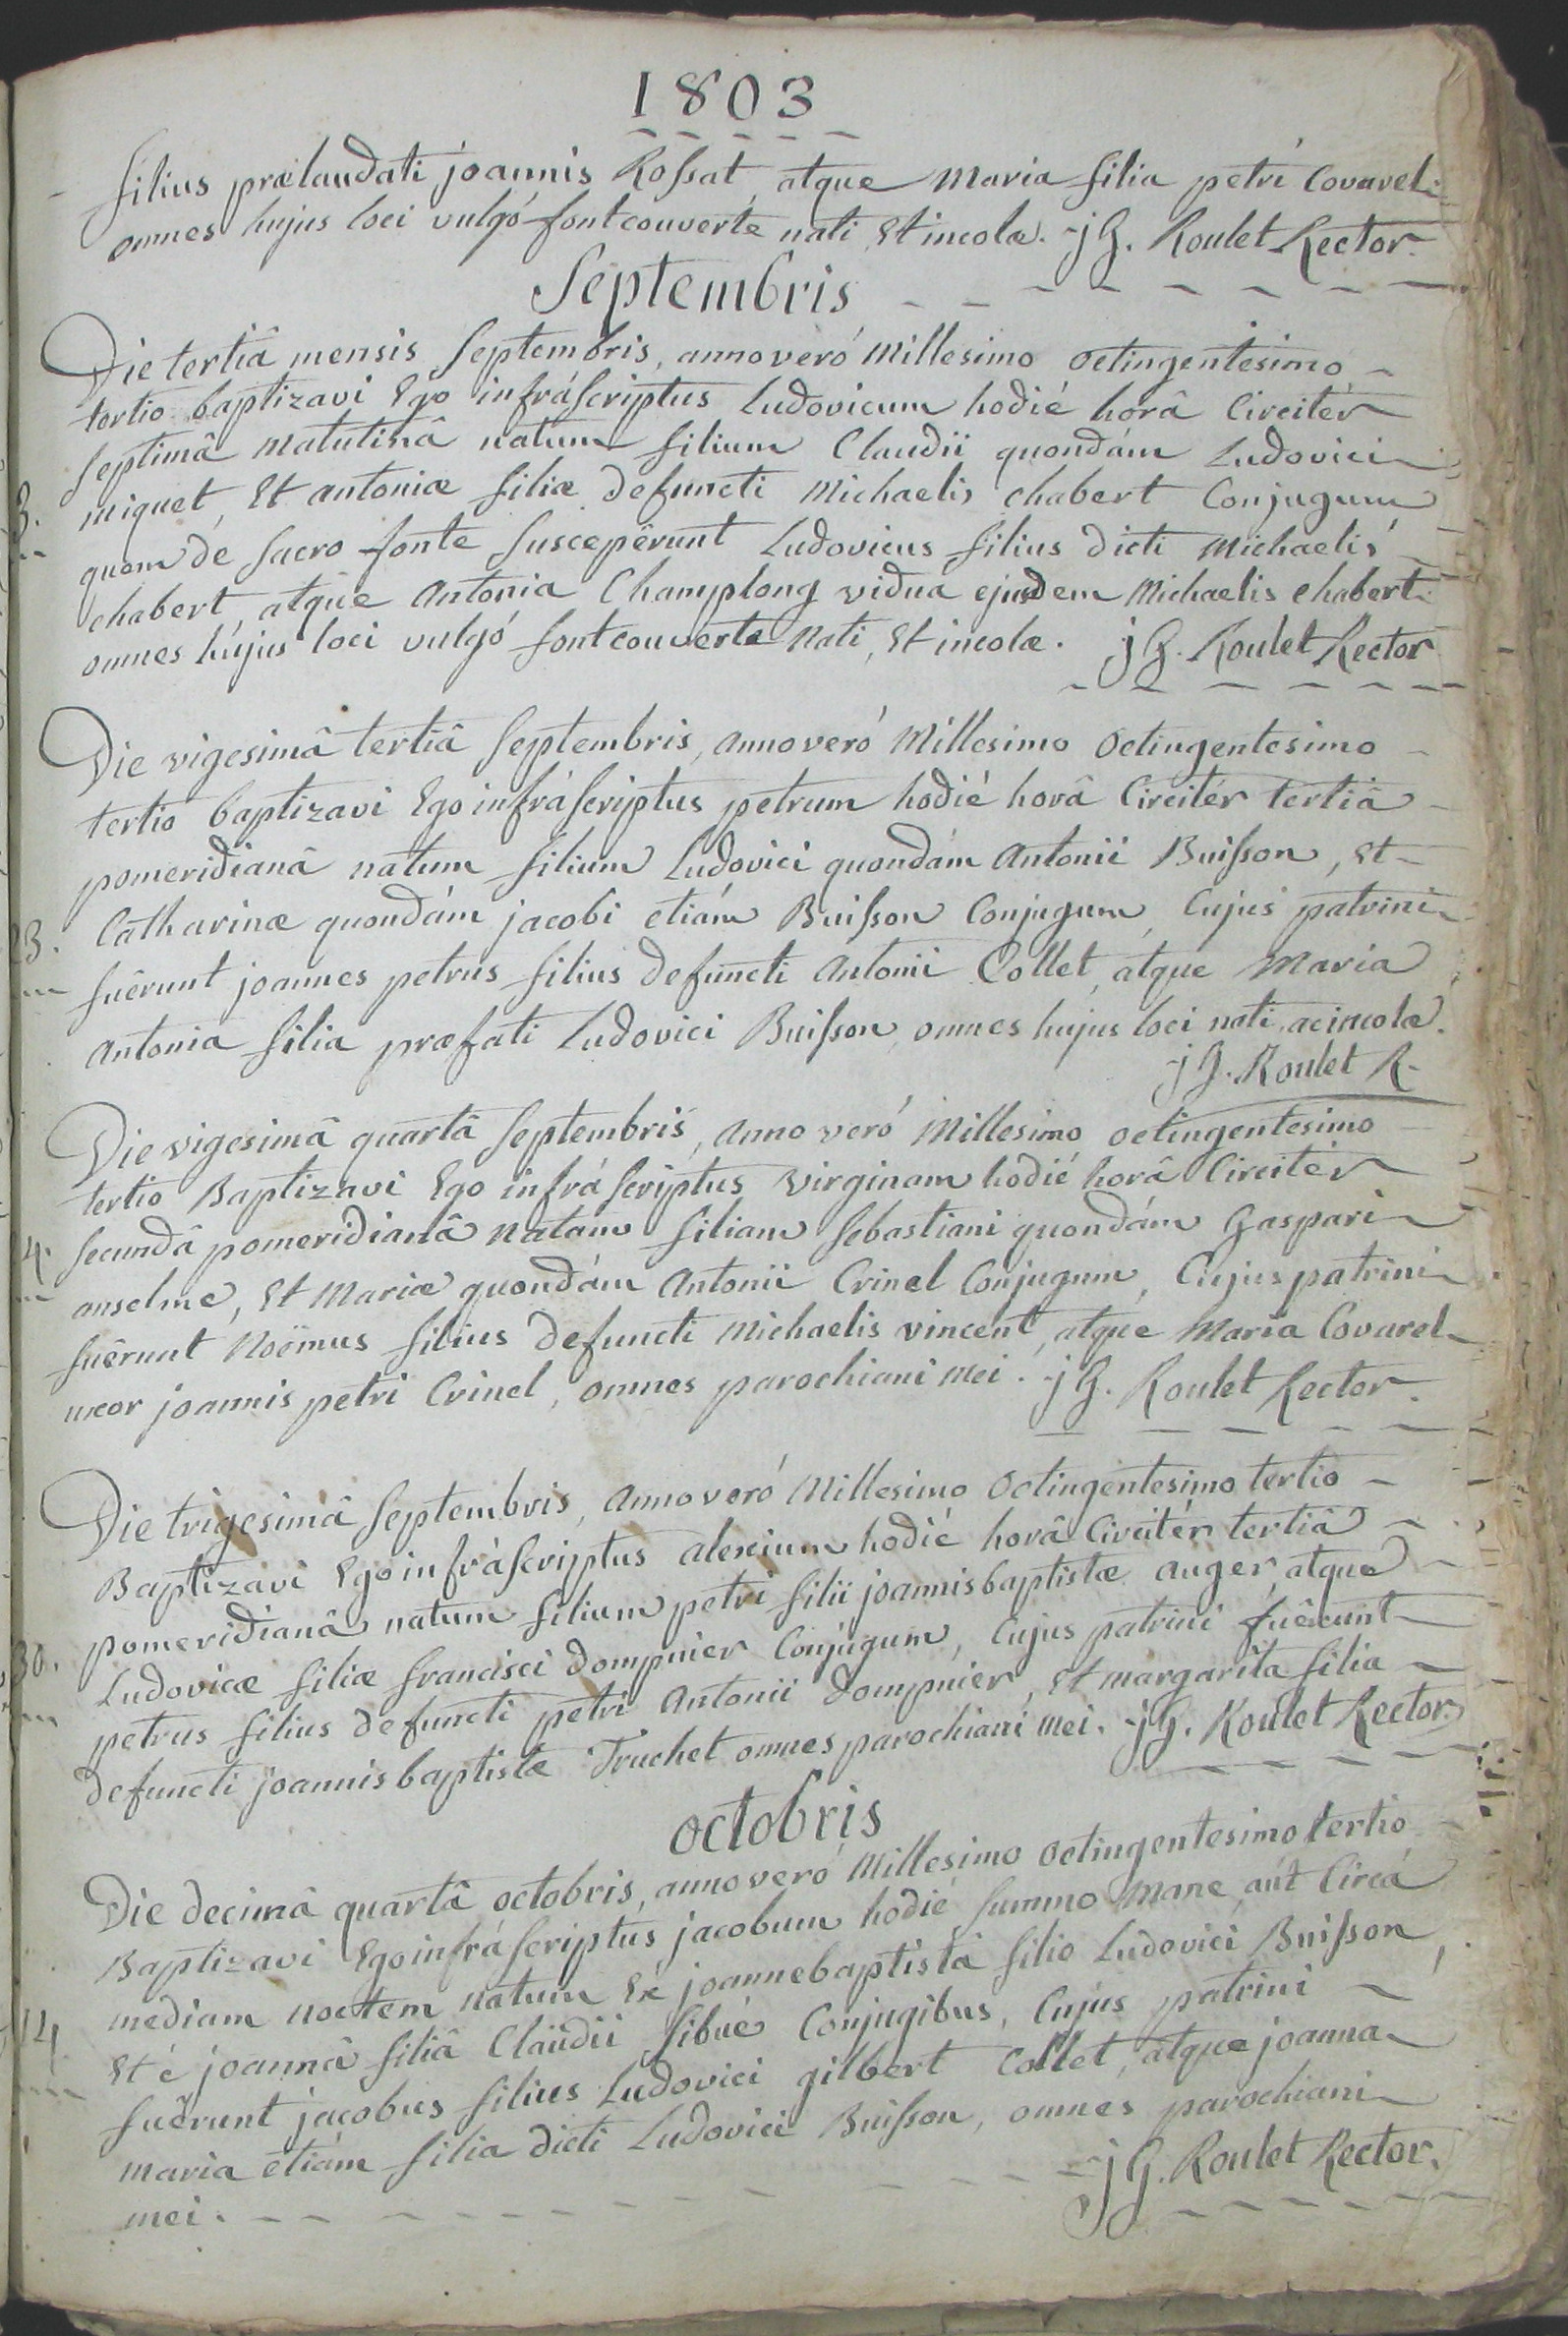 1803
filius prælaudati joannis Rossat, atque maria filia petri Covarel
omnes hujus loci vulgó fontcouverte nati, Et incolæ. j G. Roulet Rector.
Septembris
Die tertiâ mensis Septembris, anno veró Millesimo octingentesimo
tertio baptizavi Ego infráscriptus Ludovicum hodié horâ Circitér
septimâ matutinâ natum filium Claudii quondám Ludovici
3. miquet, Et antoniæ filiæ defuncti Michaelis chabert Conjugum
quem de sacro fonte suscepêrunt Ludovicus filius dicti Michaelis
chabert, atque Antonia Champlong vidua ejusdem Michaelis chabert
omnes hujus loci vulgó fontcouverte nati, Et incolæ. j G. Roulet Rector
Die vigesimâ tertiâ Septembris, anno veró Millesimo octingentesimo
tertio baptizavi Ego infráscriptus petrum hodié horâ Circitér tertiâ
pomeridianâ natum filium Ludovici quondám Antonii Buisson, Et
23. Catharinæ quondám jacobi etiám Buisson Conjugum, Cujus patrini
fuêrunt joannes petrus filius defuncti Antonii Collet, atque Maria
Antonia filia præfati Ludovici Buisson, omnes hujus loci nati, ac incolæ.
j G. Roulet R.
Die vigesimâ quartâ Septembris, anno veró Millesimo octingentesimo
tertio Baptizavi Ego infráscriptus virginam hodié horâ Circitér
4. secundâ pomeridianâ natam filiam Sebastiani quondám Gaspari
anselme, Et Mariæ quondám Antonii Crinel Conjugum, Cujus patrini
fuêrunt Noëmus filius defuncti Michaelis vincent, atque Maria Covarel
uxor joannis petri Crinel, omnes parochiani mei. j G. Roulet Rector.
Die trigesimâ Septembris, Anno veró Millesimo octingentesimo tertio
Baptizavi Ego infráscriptus alexium hodié horâ Circitér tertiâ
pomeridianâ natum filium petri filii joannisbaptistæ auger, atque
30. Ludovicæ filiæ francisci dompnier Conjugum, Cujus patrini fuêrunt
petrus filius defuncti petri Antonii dompnier, Et margarita filia
defuncti joannisbaptistæ Truchet omnes parochiani mei. j G. Roulet Rector.
octobris
Die decimâ quartâ octobris, anno veró Millesimo octingentesimo tertio
Baptizavi Ego infráscriptus jacobum hodié summo mane, aút Circá
mediam noctem natum Ex joannebaptistâ filio Ludovici Buisson,
14 Et é joannâ filiâ Claudii sibué Conjugibus, Cujus patrini
fuêrunt jacobus filius Ludovici gilbert Collet, atque joanna
maria etiám filia dicti Ludovici Buisson, omnes parochiani
mei. j G. Roulet Rector.